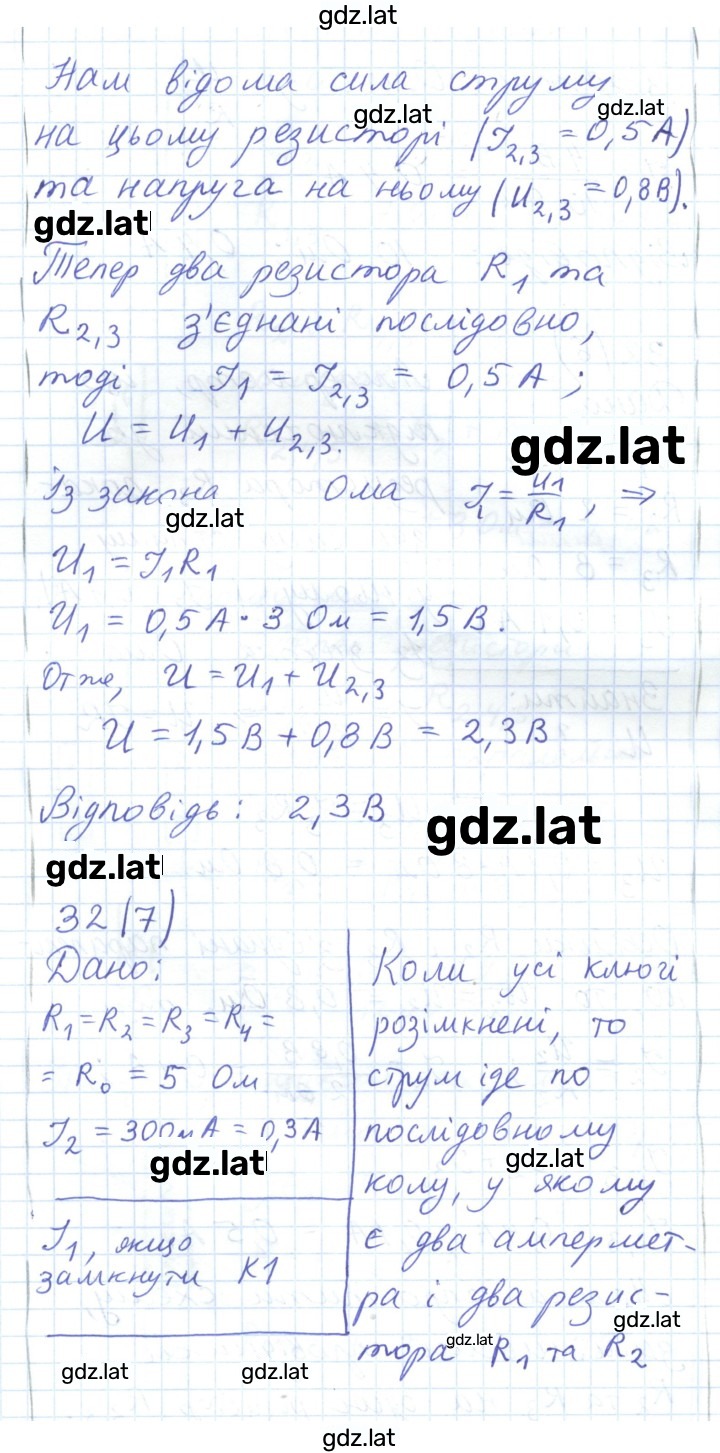 gdz.lat
Нам відома сила струму
gdz.lat gdz.lat
на цьому резисторі (I2,3 = 0,5 А)
та напруга на ньому (U2,3 = 0,8 В).
gdz.lat
Тепер два резистора R1 та
R2,3 з'єднані послідовно,
тоді I1 = I2,3 = 0,5 А ;
U = U1 + U2,3.
gdz.lat
Із закона Ома I1 = U1/R1 , ⇒
gdz.lat
U1 = I1R1
U1 = 0,5 А · 3 Ом = 1,5 В.
Отже, U = U1 + U2,3
U = 1,5 В + 0,8 В = 2,3 В
Відповідь: 2,3 В
gdz.lat
gdz.lat
32 (7)
Дано:
R1 = R2 = R3 = R4 =
= R0 = 5 Ом
I2 = 300 мА = 0,3 А
gdz.lat
I1, якщо
замкнути К1
Коли усі ключі
розімкнені, то
струм іде по
послідовному
gdz.lat
колу, у якому
є два ампермет-
ра і два резис-
gdz.lat
тора R1 та R2
gdz.lat
gdz.lat
gdz.lat
gdz.lat
gdz.lat